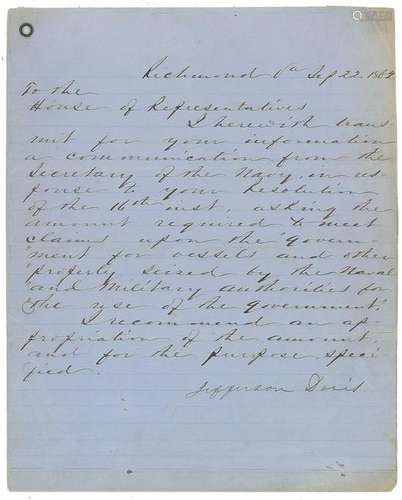 Richmond Va Sep 22. 1862
To the
House of Representatives
I herewith trans
mit for your information
a communication from the
Secretary of the Navy, in res
ponse to your Resolution
of the 16th inst, asking the
amount required to meet
claims upon the "Govern
ment for vessels and other
property seized by the Naval
and Military authorities for
the use of the Government."
I recommend an ap
propriation of the amount,
and for the purpose speci
fied.
Jefferson Davis